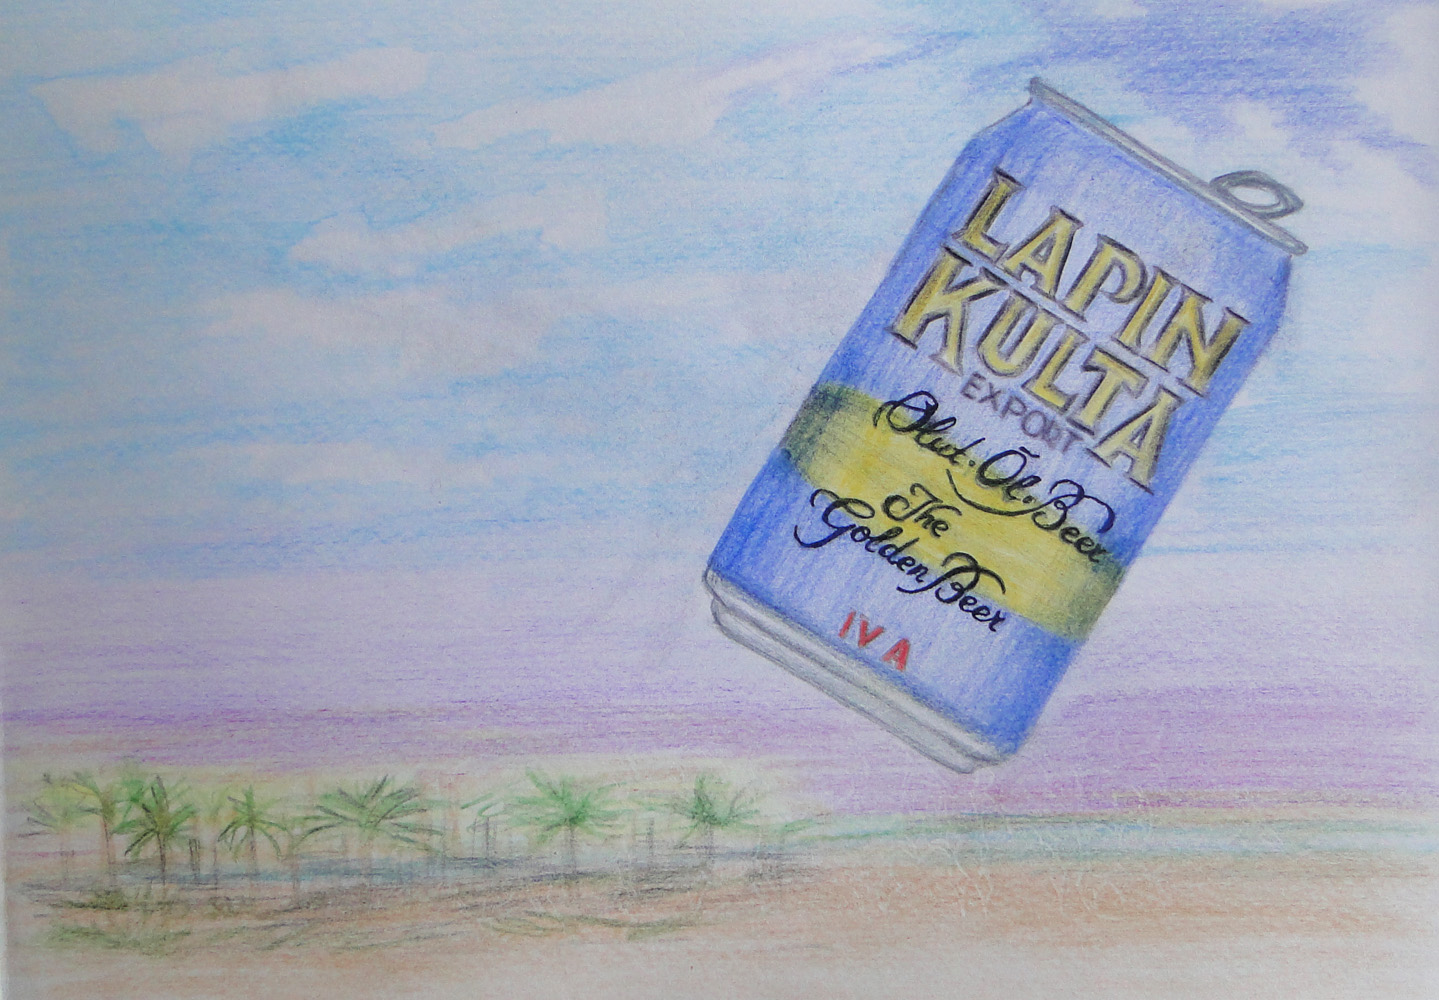 LAPIN
KULTA
EXPORT
Olut. Öl. Beer
The
Golden Beer
IV A